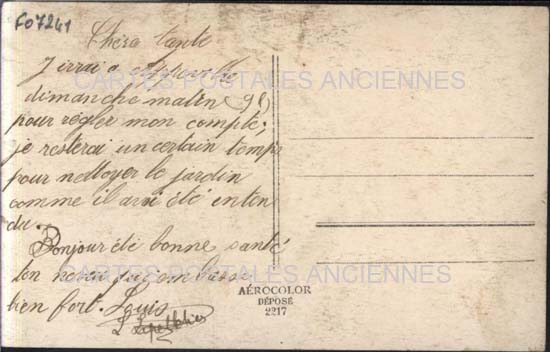 F07241
Chère tante
J'irrai a
dimanche matin
pour régler mon compte;
je resterai un certain temps
pour nettoyer le jardin
comme il avai été enten
du.
Bonjour été bonne santé
ten
bien fort. Louis
CARTES POSTALES ANCIENNES
CARTES POSTALES ANCIENNES
AÉROCOLOR
DÉPOSÉ
2217